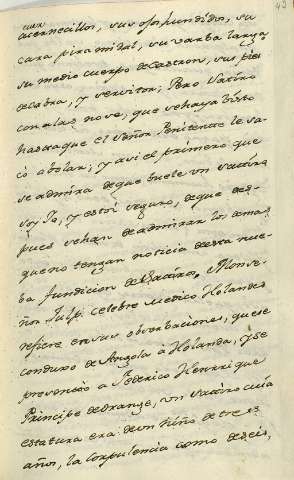 43
cuer
acernecillos, sus ojos hundidos, su
cara piramidal, su varba larga
su medio cuerpo de Castron, sus pies
de Cabra, y servitor; Pero Satiro
con alas no se, que se haya visto
hasta que el Señor Penitente le sa
có a bolar; y asi el primero que
se admira de que buele un satiro
soy Yo, y estoi seguro, de que des-
pues se han de admirar los demas
que no tengan noticia de esta nue-
ba fundicion de Satiros. Monse-
ñor Tulpi celebre Medico Holandes
refiere en sus observaciones, que se
conduxo de Angola à Holanda, y se
presentò a Federico Henrrique
Principe de Orange, un satiro cuia
estatura era de un Niño de tres
años, la Corpulencia como de seis,